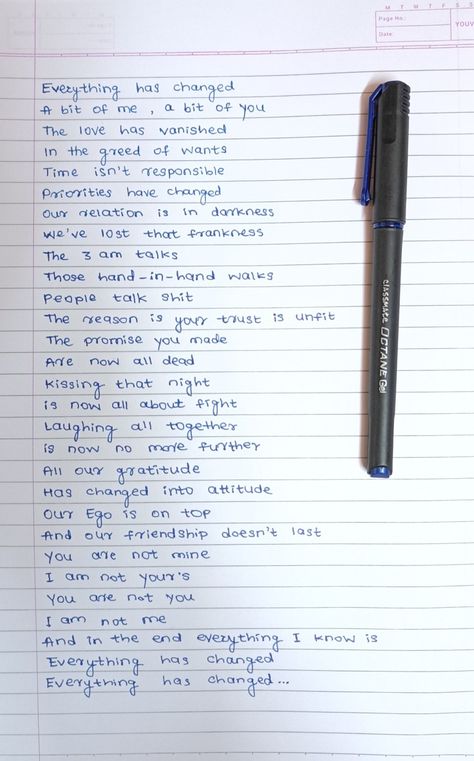 M T W T F S S
Page No.:
Date:
YOUV
Everything has changed
A bit of me , a bit of you
The love has vanished
In the greed of wants
Time isn't responsible
Priorities have changed
Our relation is in darkness
We've lost that frankness
The 3 am talks
Those hand-in-hand walks
People talk shit
The reason is your trust is unfit
The promise you made
Are now all dead
Kissing that night
is now all about fight
Laughing all together
is now no more further
All our gratitude
Has changed into attitude
Our Ego is on top
And our friendship doesn't last
You are not mine
I am not your's
You are not you
I am not me
And in the end everything I know is
Everything has changed
Everything has changed...
classmate OCTANE Gel